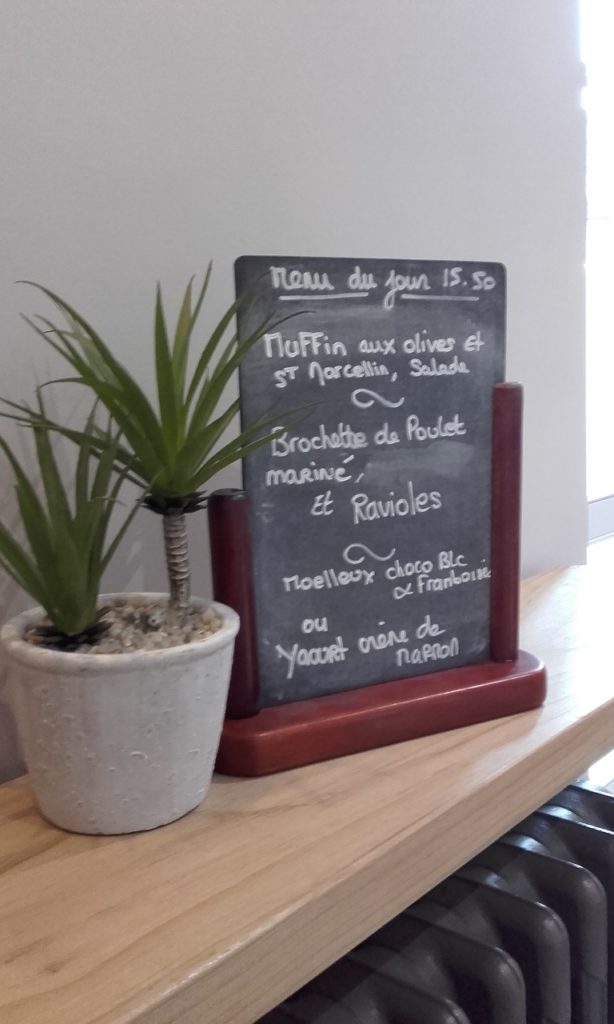 Menu du jour 15.50
Muffin aux olives et
ST Marcellin, Salade
Brochette de Poulet
mariné,
et Ravioles
Moelleux choco Blc
& Framboise
ou
Yaourt crème de
marron